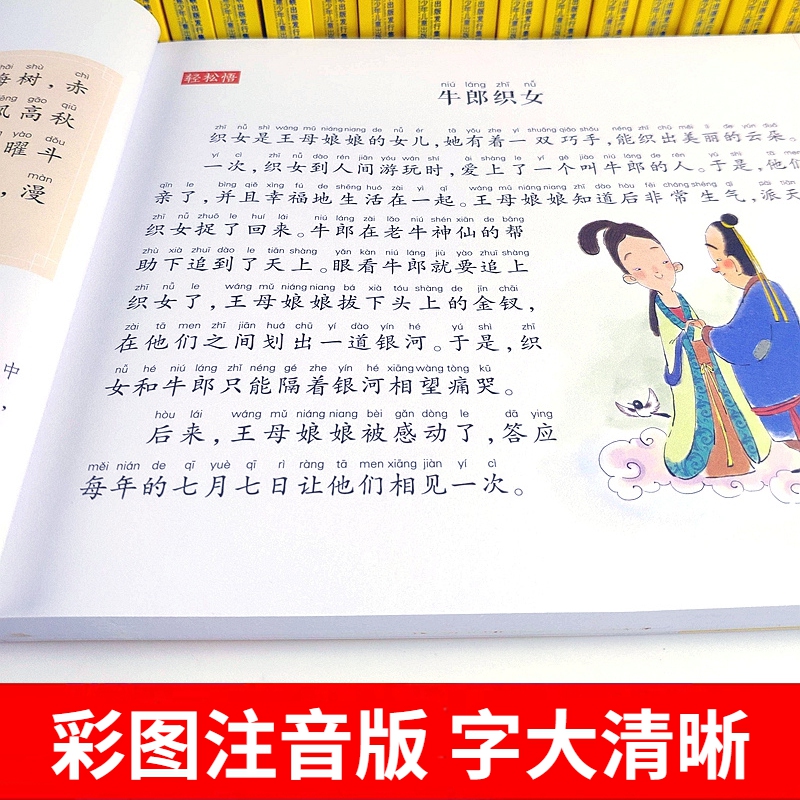 出版发行
少年儿童
chì
海树，赤
gāo qiū
风高秋
yào dǒu
曜斗
màn
，漫
中
，
轻松悟
niú láng zhī nǚ
牛郎织女
zhī nǚ shì wáng mǔ niáng niang de nǚ ér tā yǒu zhe yì shuāng qiǎo shǒu néng zhī chū měi lì de yún duǒ
织女是王母娘娘的女儿，她有着一双巧手，能织出美丽的云朵。
yí cì zhī nǚ dào rén jiān yóu wán shí ài shàng le yí gè jiào niú láng de rén yú shì tā men
一次，织女到人间游玩时，爱上了一个叫牛郎的人。于是，他们
qīn le bìng qiě xìng fú de shēng huó zài yì qǐ wáng mǔ niáng niang zhī dào hòu fēi cháng shēng qì pài tiān
亲了，并且幸福地生活在一起。王母娘娘知道后非常生气，派天
zhī nǚ zhuō le huí lái niú láng zài lǎo niú shén xiān de bāng
织女捉了回来。牛郎在老牛神仙的帮
zhù xià zhuī dào le tiān shàng yǎn kàn niú láng jiù yào zhuī shàng
助下追到了天上。眼看牛郎就要追上
zhī nǚ le wáng mǔ niáng niang bá xià tóu shàng de jīn chāi
织女了，王母娘娘拔下头上的金钗，
zài tā men zhī jiān huá chū yí dào yín hé yú shì zhī
在他们之间划出一道银河。于是，织
nǚ hé niú láng zhǐ néng gé zhe yín hé xiāng wàng tòng kū
女和牛郎只能隔着银河相望痛哭。
hòu lái wáng mǔ niáng niang bèi gǎn dòng le dā ying
后来，王母娘娘被感动了，答应
měi nián de qī yuè qī rì ràng tā men xiāng jiàn yí cì
每年的七月七日让他们相见一次。
彩图注音版 字大清晰